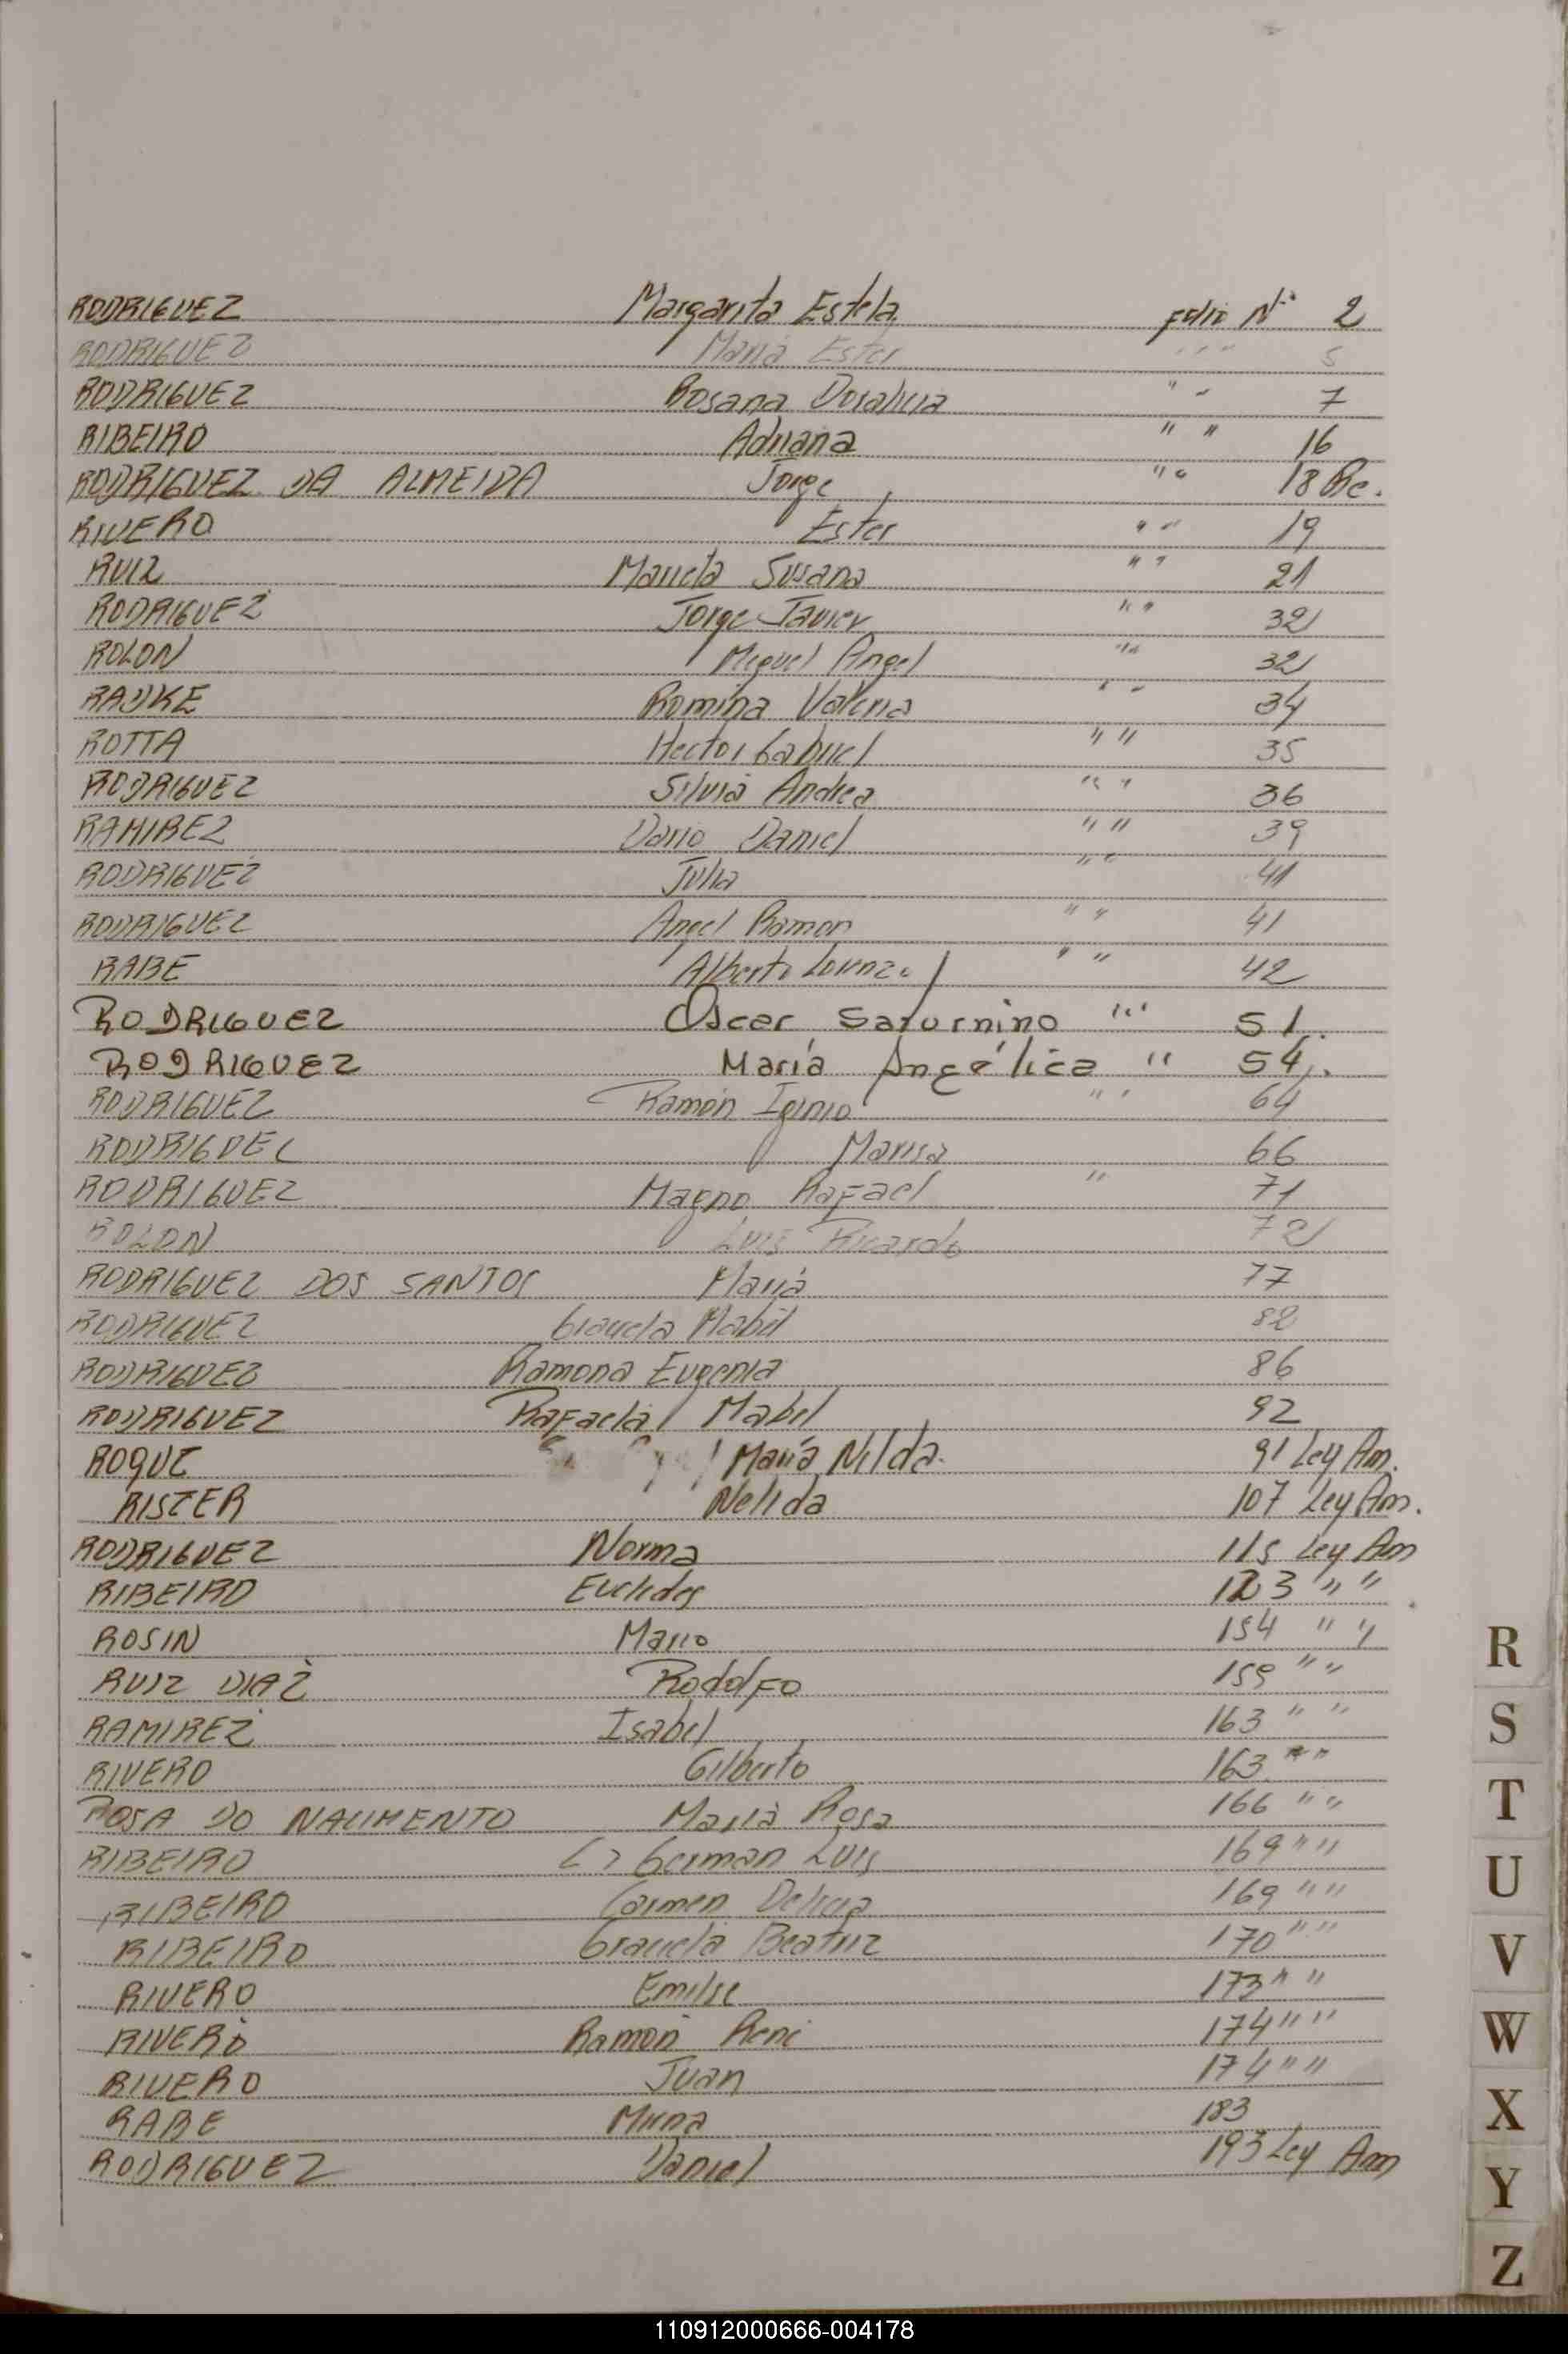 RODRIGUEZ Margarita Estela Folio Nº 2
RODRIGUEZ Maria Ester " " " 5
RODRIGUEZ Rosana Doralicia " " 7
RIBEIRO Adriana " " 16
RODRIGUEZ DA ALMEIDA Jorge " " 18 Re.
RIVERO Ester " " 19
RUIZ Mariela Susana " " 21
RODRIGUEZ Jorge Javier " " 32
ROLON Miguel Angel " " 32
RADKE Romina Valeria " " 34
ROTTA Hector Gabriel " " 35
RODRIGUEZ Silvia Andrea " " 36
RAMIREZ Dario Daniel " " 39
RODRIGUEZ Julia " " 41
RODRIGUEZ Angel Ramon " " 41
RABE Alberto Lorenzo " " 42
RODRIGUEZ Oscar Saturnino " " 51.
RODRIGUEZ María Angélica " 54.
RODRIGUEZ Ramón Iginio " " 64
RODRIGUEZ Marisa 66
RODRIGUEZ Magno Rafael " 71
ROLON Luis Ricardo 72
RODRIGUEZ DOS SANTOS Maria 77
RODRIGUEZ Graciela Mabel 82
RODRIGUEZ Ramona Eugenia 86
RODRIGUEZ Rafaela Mabel 92
ROQUE María Nilda. 91 Ley Am.
RISTER Nelida 107 Ley Am.
RODRIGUEZ Norma 115 Ley Am
RIBEIRO Euclides 123 " "
ROSIN Mario 154 " "
RUIZ DIAZ Rodolfo 159 " "
RAMIREZ Isabel 163 " "
RIVERO Gilberto 163 " "
ROSA DO NACIMENTO Maria Rosa 166 " "
RIBEIRO German Luis 169 " "
RIBEIRO Carmen Delicia 169 " "
RIBEIRO Graciela Beatriz 170 " "
RIVERO Emilse 173 " "
RIVERO Ramon Rene 174 " "
RIVERO Juan 174 " "
RABE Mirna 183
RODRIGUEZ Daniel 193 Ley Am
R
S
T
U
V
W
X
Y
Z
110912000666-004178